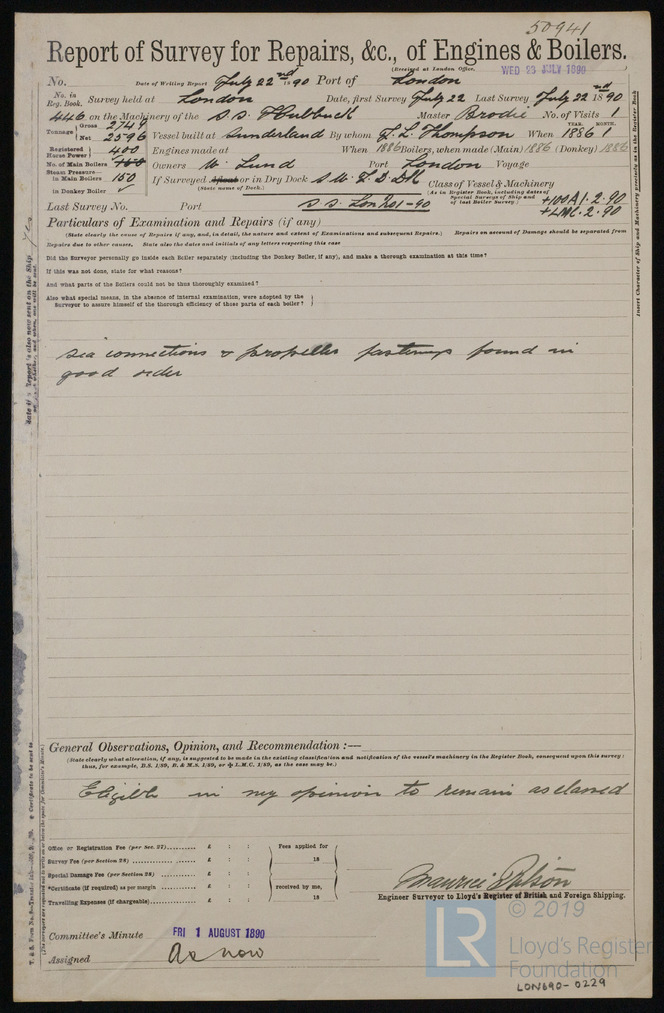 50941
Report of Survey for Repairs, &c., of Engines & Boilers.
(Received at London Office,
WED 23 JULY 1890
No. Date of Writing Report July 22nd 1890 Port of London
No. in Reg. Book. Survey held at London Date, first Survey July 22 Last Survey July 22nd 1890
446 on the Machinery of the S.S. Hubbuck Master Brodie No. of Visits 1
Tonnage Gross 2749 Net 2596 Vessel built at Sunderland By whom Thompson When YEAR. MONTH. 1886
Registered Horse Power 400 Engines made at When 1886 Boilers, when made (Main) 1886 (Donkey) 1886
No. of Main Boilers Owners W. Lund Port London Voyage
Steam Pressure— in Main Boilers 150 If Surveyed Afloat or in Dry Dock
(State name of Dock.)
in Donkey Boiler ✓
Class of Vessel & Machinery
(As in Register Book, including dates of Special Surveys of Ship and of last Boiler Survey)
+100A1. 2.90
+LMC. 2.90
Last Survey No. Port
Particulars of Examination and Repairs (if any)
(State clearly the cause of Repairs if any, and, in detail, the nature and extent of Examinations and subsequent Repairs.) Repairs on account of Damage should be separated from
Repairs due to other causes. State also the dates and initials of any letters respecting this case
Did the Surveyor personally go inside each Boiler separately (including the Donkey Boiler, if any), and make a thorough examination at this time?
If this was not done, state for what reasons?
And what parts of the Boilers could not be thus thoroughly examined?
Also what special means, in the absence of internal examination, were adopted by the
Surveyor to assure himself of the thorough efficiency of those parts of each boiler?
Sea connections & propeller fastenings found in
good order
General Observations, Opinion, and Recommendation :—
(State clearly what alteration, if any, is suggested to be made in the existing classification and notification of the vessel's machinery in the Register Book, consequent upon this survey;
thus, for example, B.S. 1/89, B. & M.S. 1/89, or L.M.C. 1/89, as the case may be.)
Eligible in my opinion to remain as classed
Office or Registration Fee (per Sec. 27) £ : : Fees applied for
Survey Fee (per Section 28) £ : : 18
Special Damage Fee (per Section 28) £ : :
*Certificate (if required) as per margin £ : : received by me,
Travelling Expenses (if chargeable) £ : : 18
Engineer Surveyor to Lloyd's Register of British and Foreign Shipping.
Committee's Minute FRI 1 AUGUST 1890
Assigned As now
LR
© 2019
Lloyd's Register
Foundation
LON690-0229
Insert Character of Ship and Machinery precisely as in the Register Book